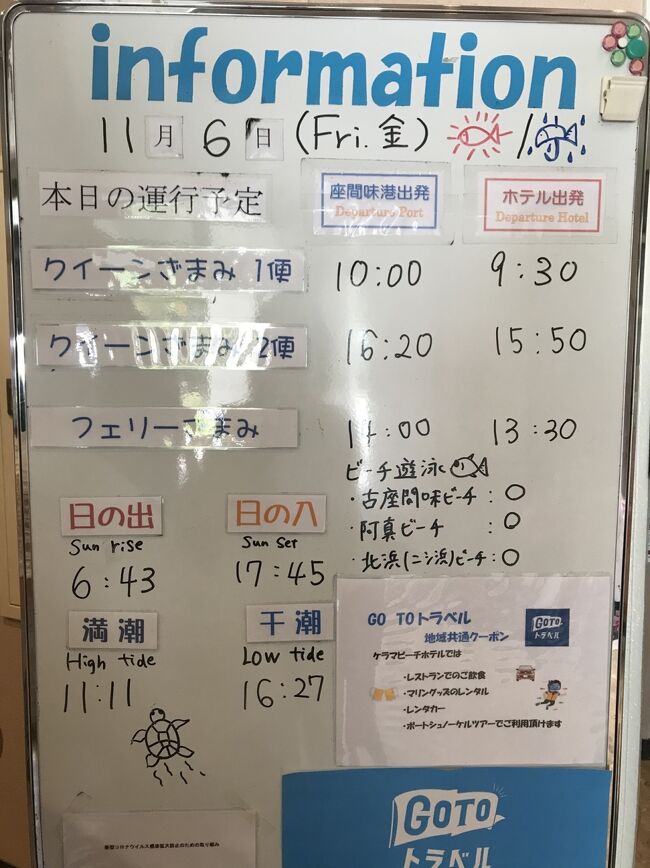 information
11月6日(Fri.金) /
本日の運行予定 座間味港出発 ホテル出発
Departure Port Departure Hotel
クイーンざまみ 1便 10:00 9:30
クイーンざまみ 2便 16:20 15:50
フェリーざまみ 14:00 13:30
ビーチ遊泳
・古座間味ビーチ:○
・阿真ビーチ :○
・北浜(ニシ浜)ビーチ:○
日の出 日の入
Sun rise Sun set
6:43 17:45
満潮 干潮
High tide Low tide
11:11 16:27
GO TOトラベル
地域共通クーポン
GOTO
トラベル
ケラマビーチホテルでは
・レストランでのご飲食
・マリングッズのレンタル
・レンタカー
・ボートシュノーケルツアーでご利用頂けます
新型コロナウイルス感染拡大防止のための取り組み
GOTO
トラベル